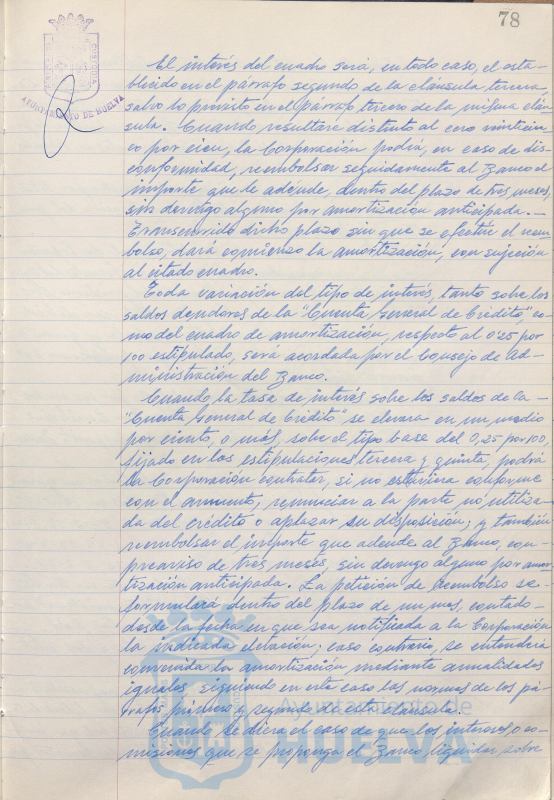 78
AYUNTAMIENTO DE HUELVA
El interés del cuadro será, en todo caso, el esta-
blecido en el párrafo segundo de la cláusula tercera,
salvo lo previsto en el párrafo tercero de la misma cláu-
sula. Cuando resultare distinto al cero veinticin-
co por cien, la Corporación podrá, en caso de dis-
conformidad, reembolsar seguidamente al Banco el
importe que le adeude, dentro del plazo de tres meses,
sin devengo alguno por amortización anticipada.—
Transcurrido dicho plazo sin que se efectúe el reem-
bolso, dará comienzo la amortización, con sujeción
al citado cuadro.
Toda variación del tipo de interés, tanto sobre los
saldos deudores de la "Cuenta General de Crédito", co-
mo del cuadro de amortización, respecto al 0'25 por
100 estipulado, será acordada por el Consejo de Ad-
ministración del Banco.
Cuando la tasa de interés sobre los saldos de la-
"Cuenta General de Crédito" se elevara en un medio
por ciento, o más, sobre el tipo base del 0,25 por 100,
fijado en las estipulaciones tercera y quinta, podrá
la Corporación contratar, si no estuviera conforme
con el aumento, renunciar a la parte no utiliza-
da del crédito o aplazar su disposición; y también
reembolsar el importe que adeude al Banco, con-
preaviso de tres meses, sin devengo alguno por amor-
tización anticipada. La petición de reembolso se-
formulará dentro del plazo de un mes, contado-
desde la fecha en que sea notificada a la Corporación
la indicada elevación; caso contrario, se entendería
convenida la amortización mediante anualidades
iguales siguiendo en este caso las normas de los pá-
rrafos primero y segundo de esta cláusula.
Cuando se diera el caso de que los intereses o co-
misiones que se proponga el Banco liquidar sobre
Ayuntamiento de
HUELVA